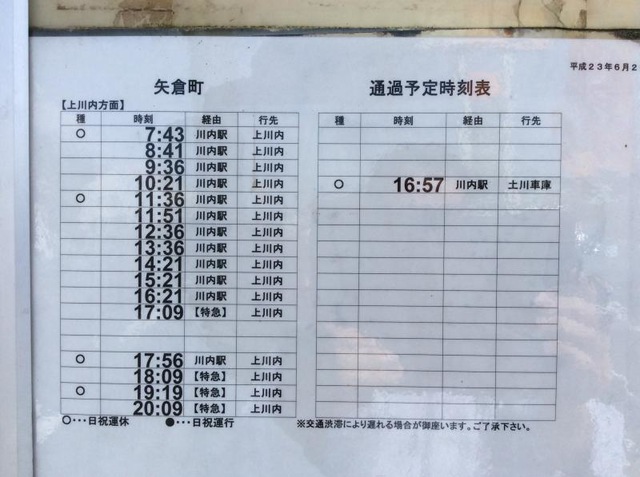 平成23年6月2
矢倉町 通過予定時刻表
【上川内方面】
種 時刻 経由 行先 種 時刻 経由 行先
○ 7:43 川内駅 上川内
8:41 川内駅 上川内
9:36 川内駅 上川内
10:21 川内駅 上川内 ○ 16:57 川内駅 土川車庫
○ 11:36 川内駅 上川内
11:51 川内駅 上川内
12:36 川内駅 上川内
13:36 川内駅 上川内
14:21 川内駅 上川内
15:21 川内駅 上川内
16:21 川内駅 上川内
17:09 【特急】 上川内
○ 17:56 川内駅 上川内
18:09 【特急】 上川内
○ 19:19 【特急】 上川内
20:09 【特急】 上川内
○・・・日祝運休 ●・・・日祝運行 ※交通渋滞により遅れる場合が御座います。ご了承下さい。